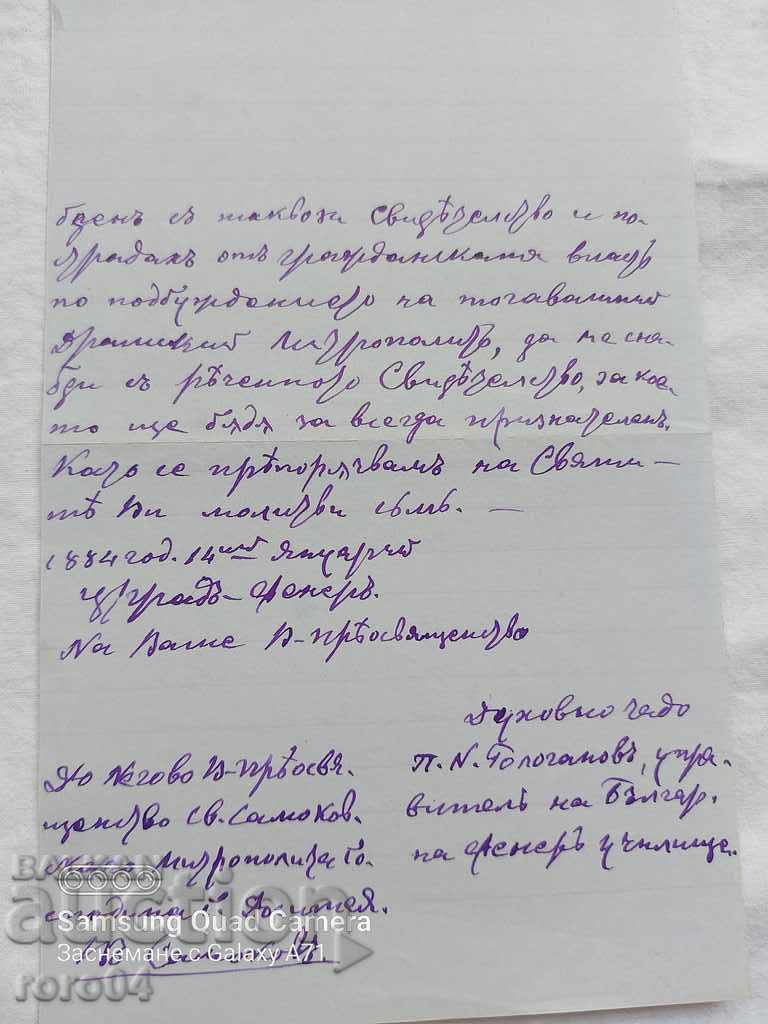 бденъ съ таквози Свидѣтелство и по-
страдахъ отъ гражданската власть
по подбуждението на тогавашний
Драмский Митрополитъ, да ме сна-
бди съ рѣченното Свидѣтелство, за кое-
то ще бѫдѫ за всегда признателенъ.
Като се прѣпорѫчвамъ на Святи-
тѣ Ви молитви съмъ. —
1884 год. 14ий Януарий
Ц/градъ - Фенеръ.
На Ваше В-Прѣосвященство
Духовно чадо
П. Н. Гологановъ, упра-
витель на Българ.
на Фенеръ училище.
До Негово В-Прѣосвя-
щенство Св. Самоков-
Митрополита Го-
сподина г. Доситея.
Въ
BALKAN auction
Samsung Quad Camera
Заснемане с Galaxy A71
roro04